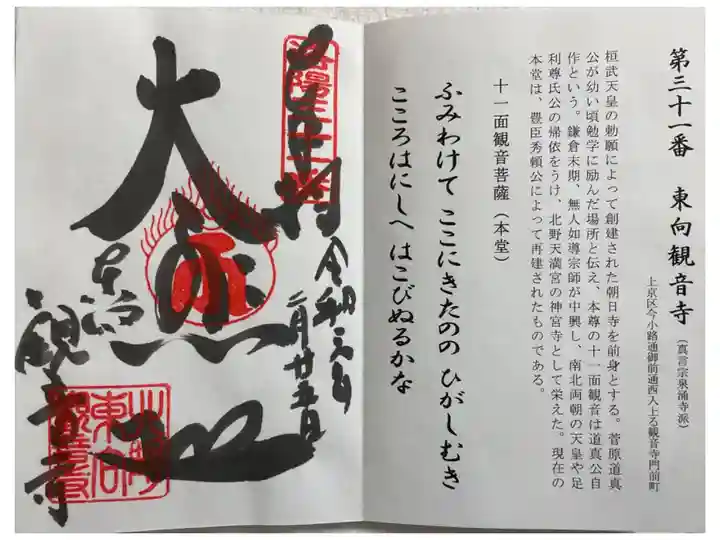 第三十一番　東向観音寺（真言宗泉涌寺派）
上京区今小路通御前通西入上る観音寺門前町
桓武天皇の勅願によって創建された朝日寺を前身とする。菅原道真
公が幼い頃勉学に励んだ場所と伝え、本尊の十一面観音は道真公自
作という。鎌倉末期、無人如導宗師が中興し、南北両朝の天皇や足
利尊氏公の帰依をうけ、北野天満宮の神宮寺として栄えた。現在の
本堂は、豊臣秀頼公によって再建されたものである。
十一面観音菩薩（本堂）
ふみわけて ここにきたのの ひがしむき
こころはにしへ はこびぬるかな
洛陽三十一番
大悲
東向
観音寺